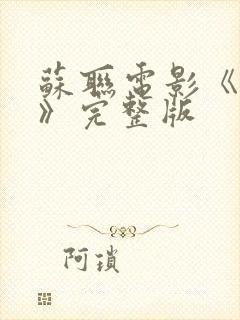 蘇聯電影《
》完整版
阿瑣